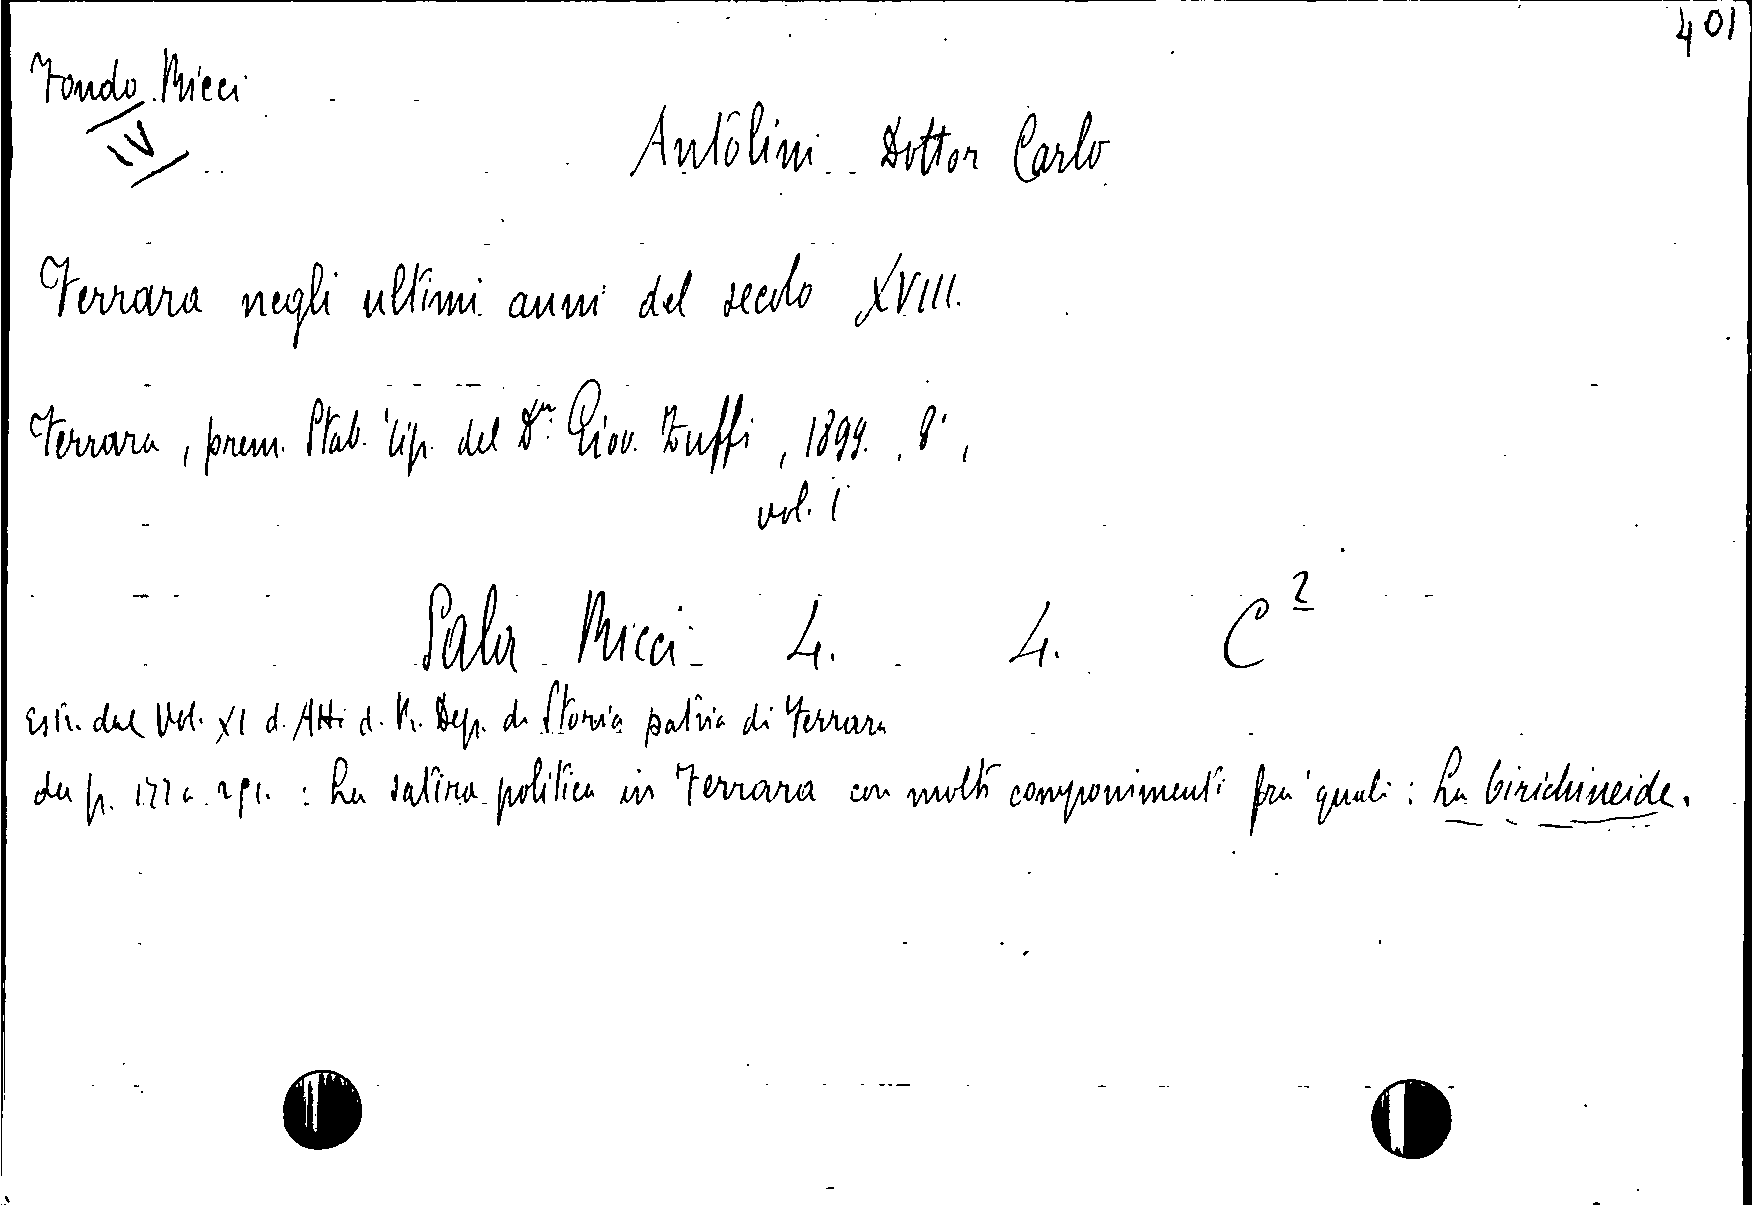 401
Fondo Ricci
IV
Antolini Dottor Carlo
Ferrara negli ultimi anni del secolo XVIII.
Ferrara, prem. Stab. tip. del Dr. Giov. Zuffi, 1899. 8°,
vol. 1
Sala Ricci 4. 4. C 2
Estr. dal Vol. XI d. Atti d. R. Dep. di Storia patria di Ferrara
da p. 177 a 291. : La satira politica in Ferrara con molti componimenti fra' quali : La birichineide.